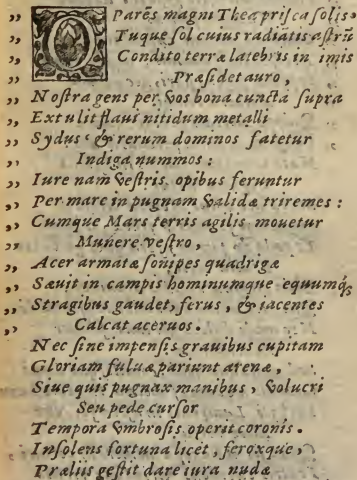 „ O Parẽs magni Thea prisca solis
„ Tuque sol cuius radiatis astrũ
„ Condito terræ latebris in imis
„ Præsidet auro,
„ Nostra gens per vos bona cuncta supra
„ Extulit flaui nitidum metalli
„ Sydus & rerum dominos fatetur
Indiga nummos:
„ Iure nam vestris opibus feruntur
„ Per mare in pugnam validæ triremes:
„ Cumque Mars terris agilis mouetur
„ Munere vestro,
„ Acer armatæ sonipes quadrigæ
„ Sæuit in campis hominumque equumq́;
„ Stragibus gaudet, ferus, & iacentes
„ Calcat aceruos.
Nec sine impensis grauibus cupitam
Gloriam fuluæ pariunt arenæ,
Siue quis pugnax manibus, volucri
Seu pede cursor
Tempora vmbrosis operit coronis.
Insolens fortuna licet, feroxque,
Prælijs gestit dare iura nudæ